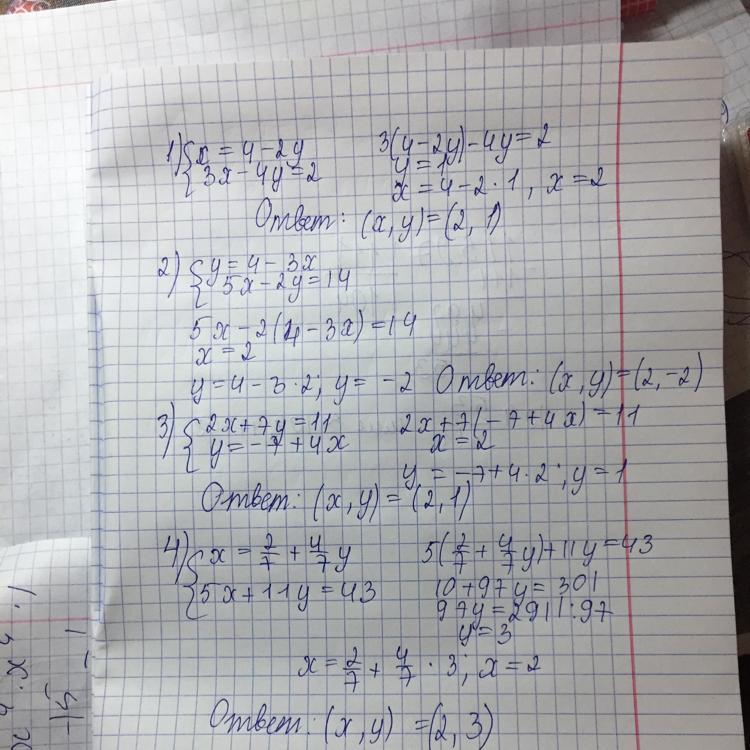 1) { x = 4 - 2y
3x - 4y = 2
3(4-2y)-4y=2
y=1
x = 4-2·1, x=2
Ответ: (x,y)=(2,1)
2) { y=4-3x
5x-2y=14
5x-2(4-3x)=14
x=2
y=4-3·2; y=-2 Ответ: (x,y)=(2,-2)
3) { 2x+7y=11
y=-7+4x
2x+7(-7+4x)=11
x=2
y=-7+4·2; y=1
Ответ: (x,y)=(2,1)
4) { x = 2/7 + 4/7 y
5x+11y=43
5(2/7 + 4/7 y)+11y=43
10+97y=301
97y=291|:97
y=3
x = 2/7 + 4/7 · 3; x=2
Ответ: (x,y)=(2,3)